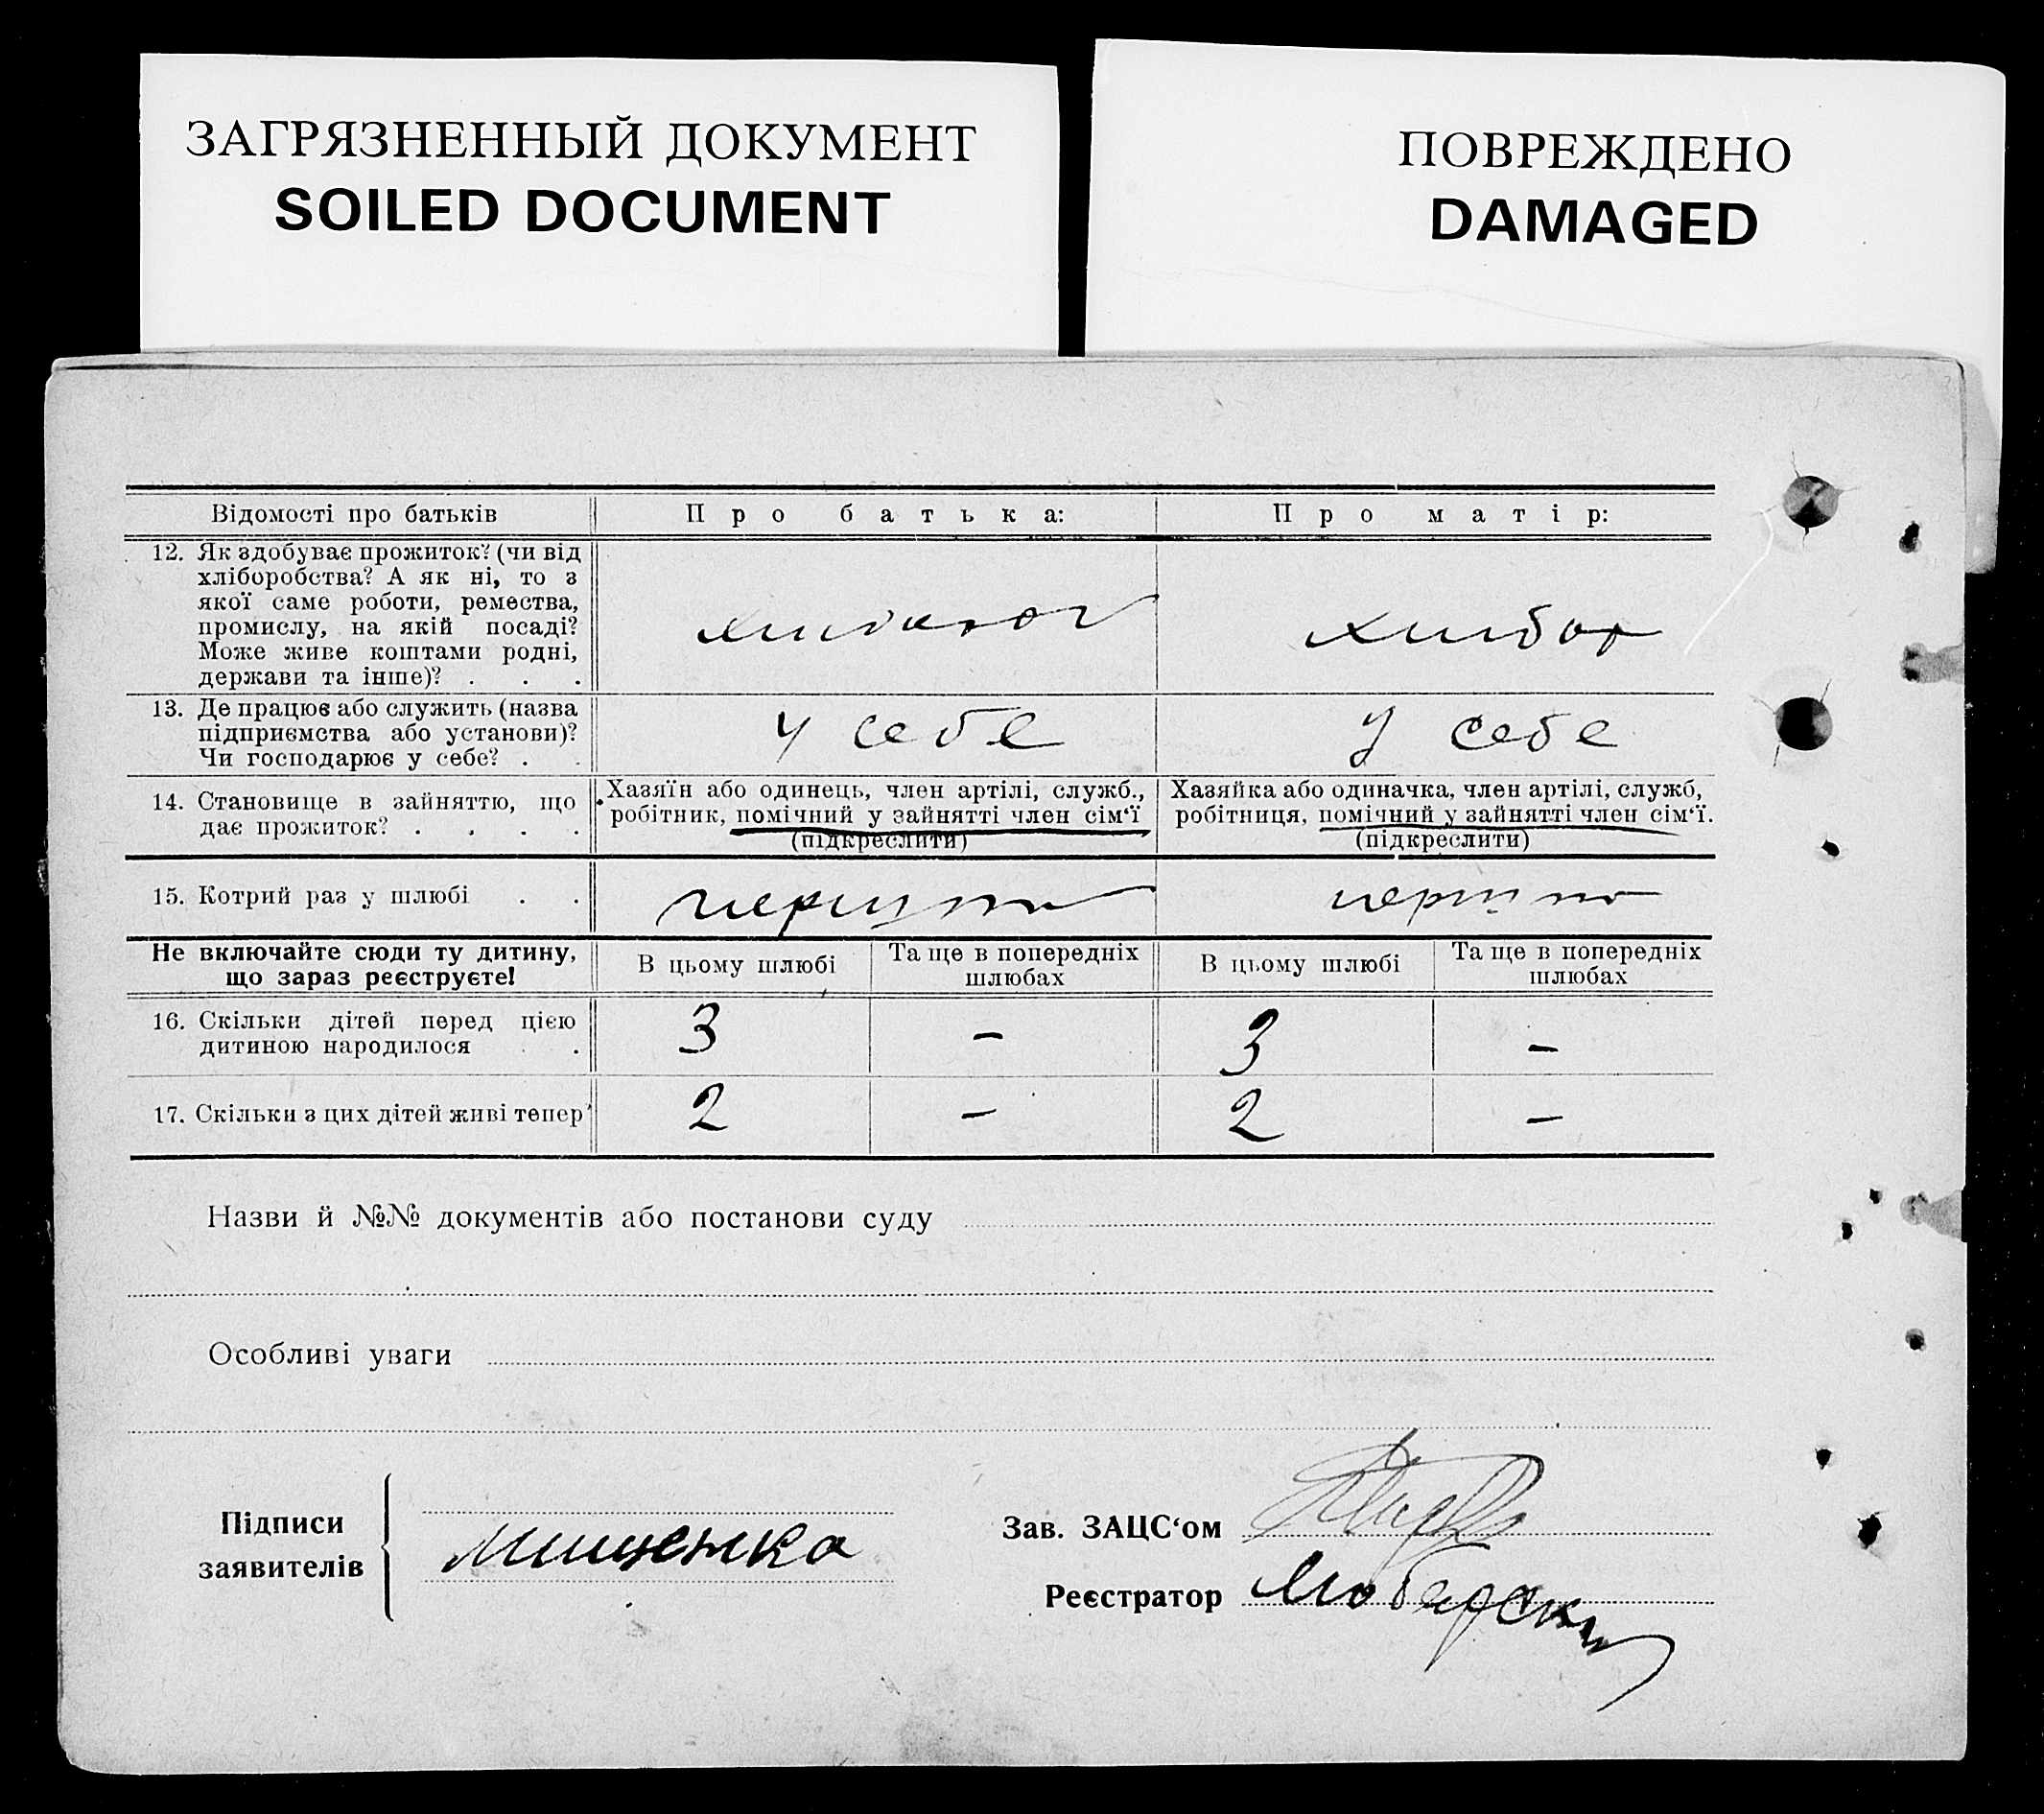 ЗАГРЯЗНЕННЫЙ ДОКУМЕНТ
SOILED DOCUMENT
ПОВРЕЖДЕНО
DAMAGED
Відомості про батьків
Про батька:
Про матір:
12. Як здобуває прожиток? (чи від
хліборобства? А як ні, то з
якої саме роботи, ремества,
промислу, на якій посаді?
Може живе коштами родні,
держави та інше)? . . .
хлібороб
13. Де працює або служить (назва
підприємства або установи)?
Чи господарює у себе? . .
у себе
у себе
14. Становище в зайняттю, що
дає прожиток? . . . .
Хазяїн або одинець, член артілі, служб.,
робітник, помічний у зайнятті член сім‘ї
(підкреслити)
Хазяйка або одиначка, член артілі, служб,
робітниця, помічний у зайнятті член сім‘ї.
(підкреслити)
15. Котрий раз у шлюбі . .
Не включайте сюди ту дитину,
що зараз реєструєте!
В цьому шлюбі
Та ще в попередніх
шлюбах
В цьому шлюбі
Та ще в попередніх
шлюбах
16. Скільки дітей перед цією
дитиною народилося . .
3
–
3
–
17. Скільки з цих дітей живі тепер
2
–
2
–
Назви й №№ документів або постанови суду
Особливі уваги
Підписи
заявителів
Мищенко
Зав. ЗАЦС‘ом
Реєстратор